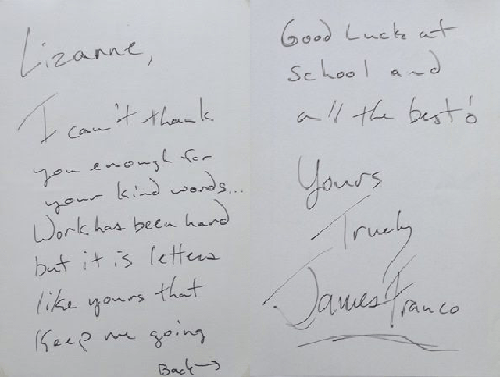 Lizanne,
I can't thank
you enough for
your kind words...
Work has been hard
but it is letters
like yours that
Keep me going
Back→
Good Luck at
School and
all the best!
Yours
Truely
James Franco